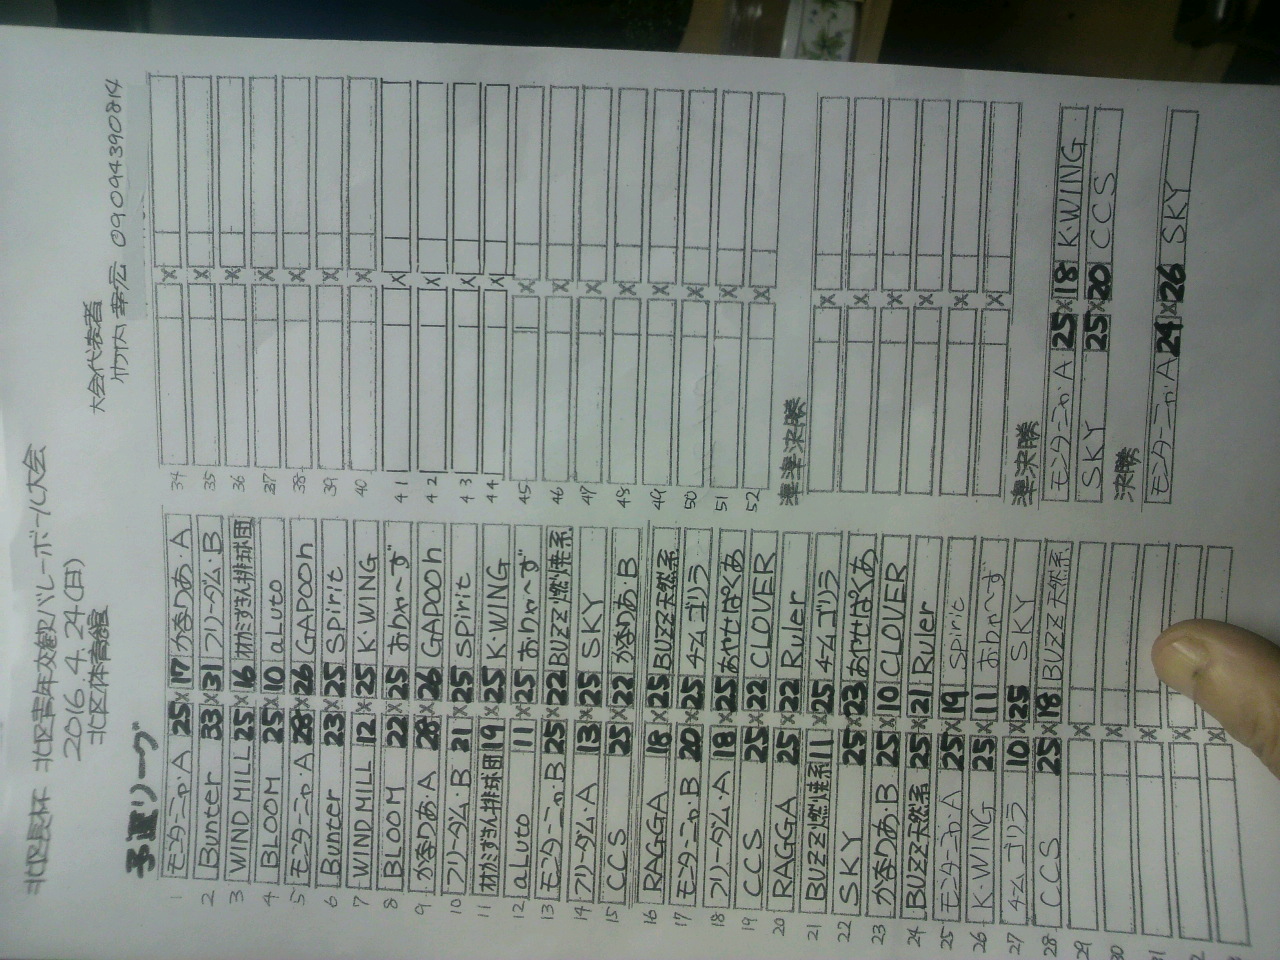 北区長杯 北区青年交歓バレーボール大会
2016.4.24(日)
北区体育館
大会代表者
竹内 幸宏 09094390814
予選リーグ
1 モンタニャ・A 25×17 かありあ・A
2 Bunter 33×31 フリーダム・B
3 WIND MILL 25×16 オオカミずきん排球団
4 BLOOM 25×10 aLuto
5 モンタニャ・A 28×26 GAPOON
6 Bunter 23×25 Spirit
7 WIND MILL 12×25 K・WING
8 BLOOM 22×25 おりゃ〜ず
9 かありあ A 28×26 GAPOON
10 フリーダム B 21×25 Spirit
11 オオカミずきん排球団 19×25 K・WING
12 aLuto 11×25 おりゃ〜ず
13 モンタニャ・B 25×22 BUZZ燃焼系
14 フリーダム・A 13×25 SKY
15 CCS 25×22 かありあ・B
16 RAGGA 18×25 BUZZ天然系
17 モンタニャ・B 20×25 チームゴリラ
18 フリーダム・A 18×25 おやせばくあ
19 CCS 25×22 CLOVER
20 RAGGA 25×22 Ruler
21 BUZZ燃焼系 11×25 チームゴリラ
22 SKY 25×23 おやせばくあ
23 かありあ・B 25×10 CLOVER
24 BUZZ天然系 25×21 Ruler
25 モンタニャ・A 25×19 Spirit
26 K・WING 25×11 おりゃ〜ず
27 チームゴリラ 10×25 SKY
28 CCS 25×18 BUZZ天然系
29 ×
30 ×
31 ×
×
×
34 ×
35 ×
36 ×
37 ×
38 ×
39 ×
40 ×
41 ×
42 ×
43 ×
44 ×
45 ×
46 ×
47 ×
48 ×
49 ×
50 ×
51 ×
52 ×
準準決勝
×
×
×
×
×
×
準決勝
モンタニャ・A 25×18 K・WING
SKY 25×20 CCS
決勝
モンタニャ・A 24×26 SKY